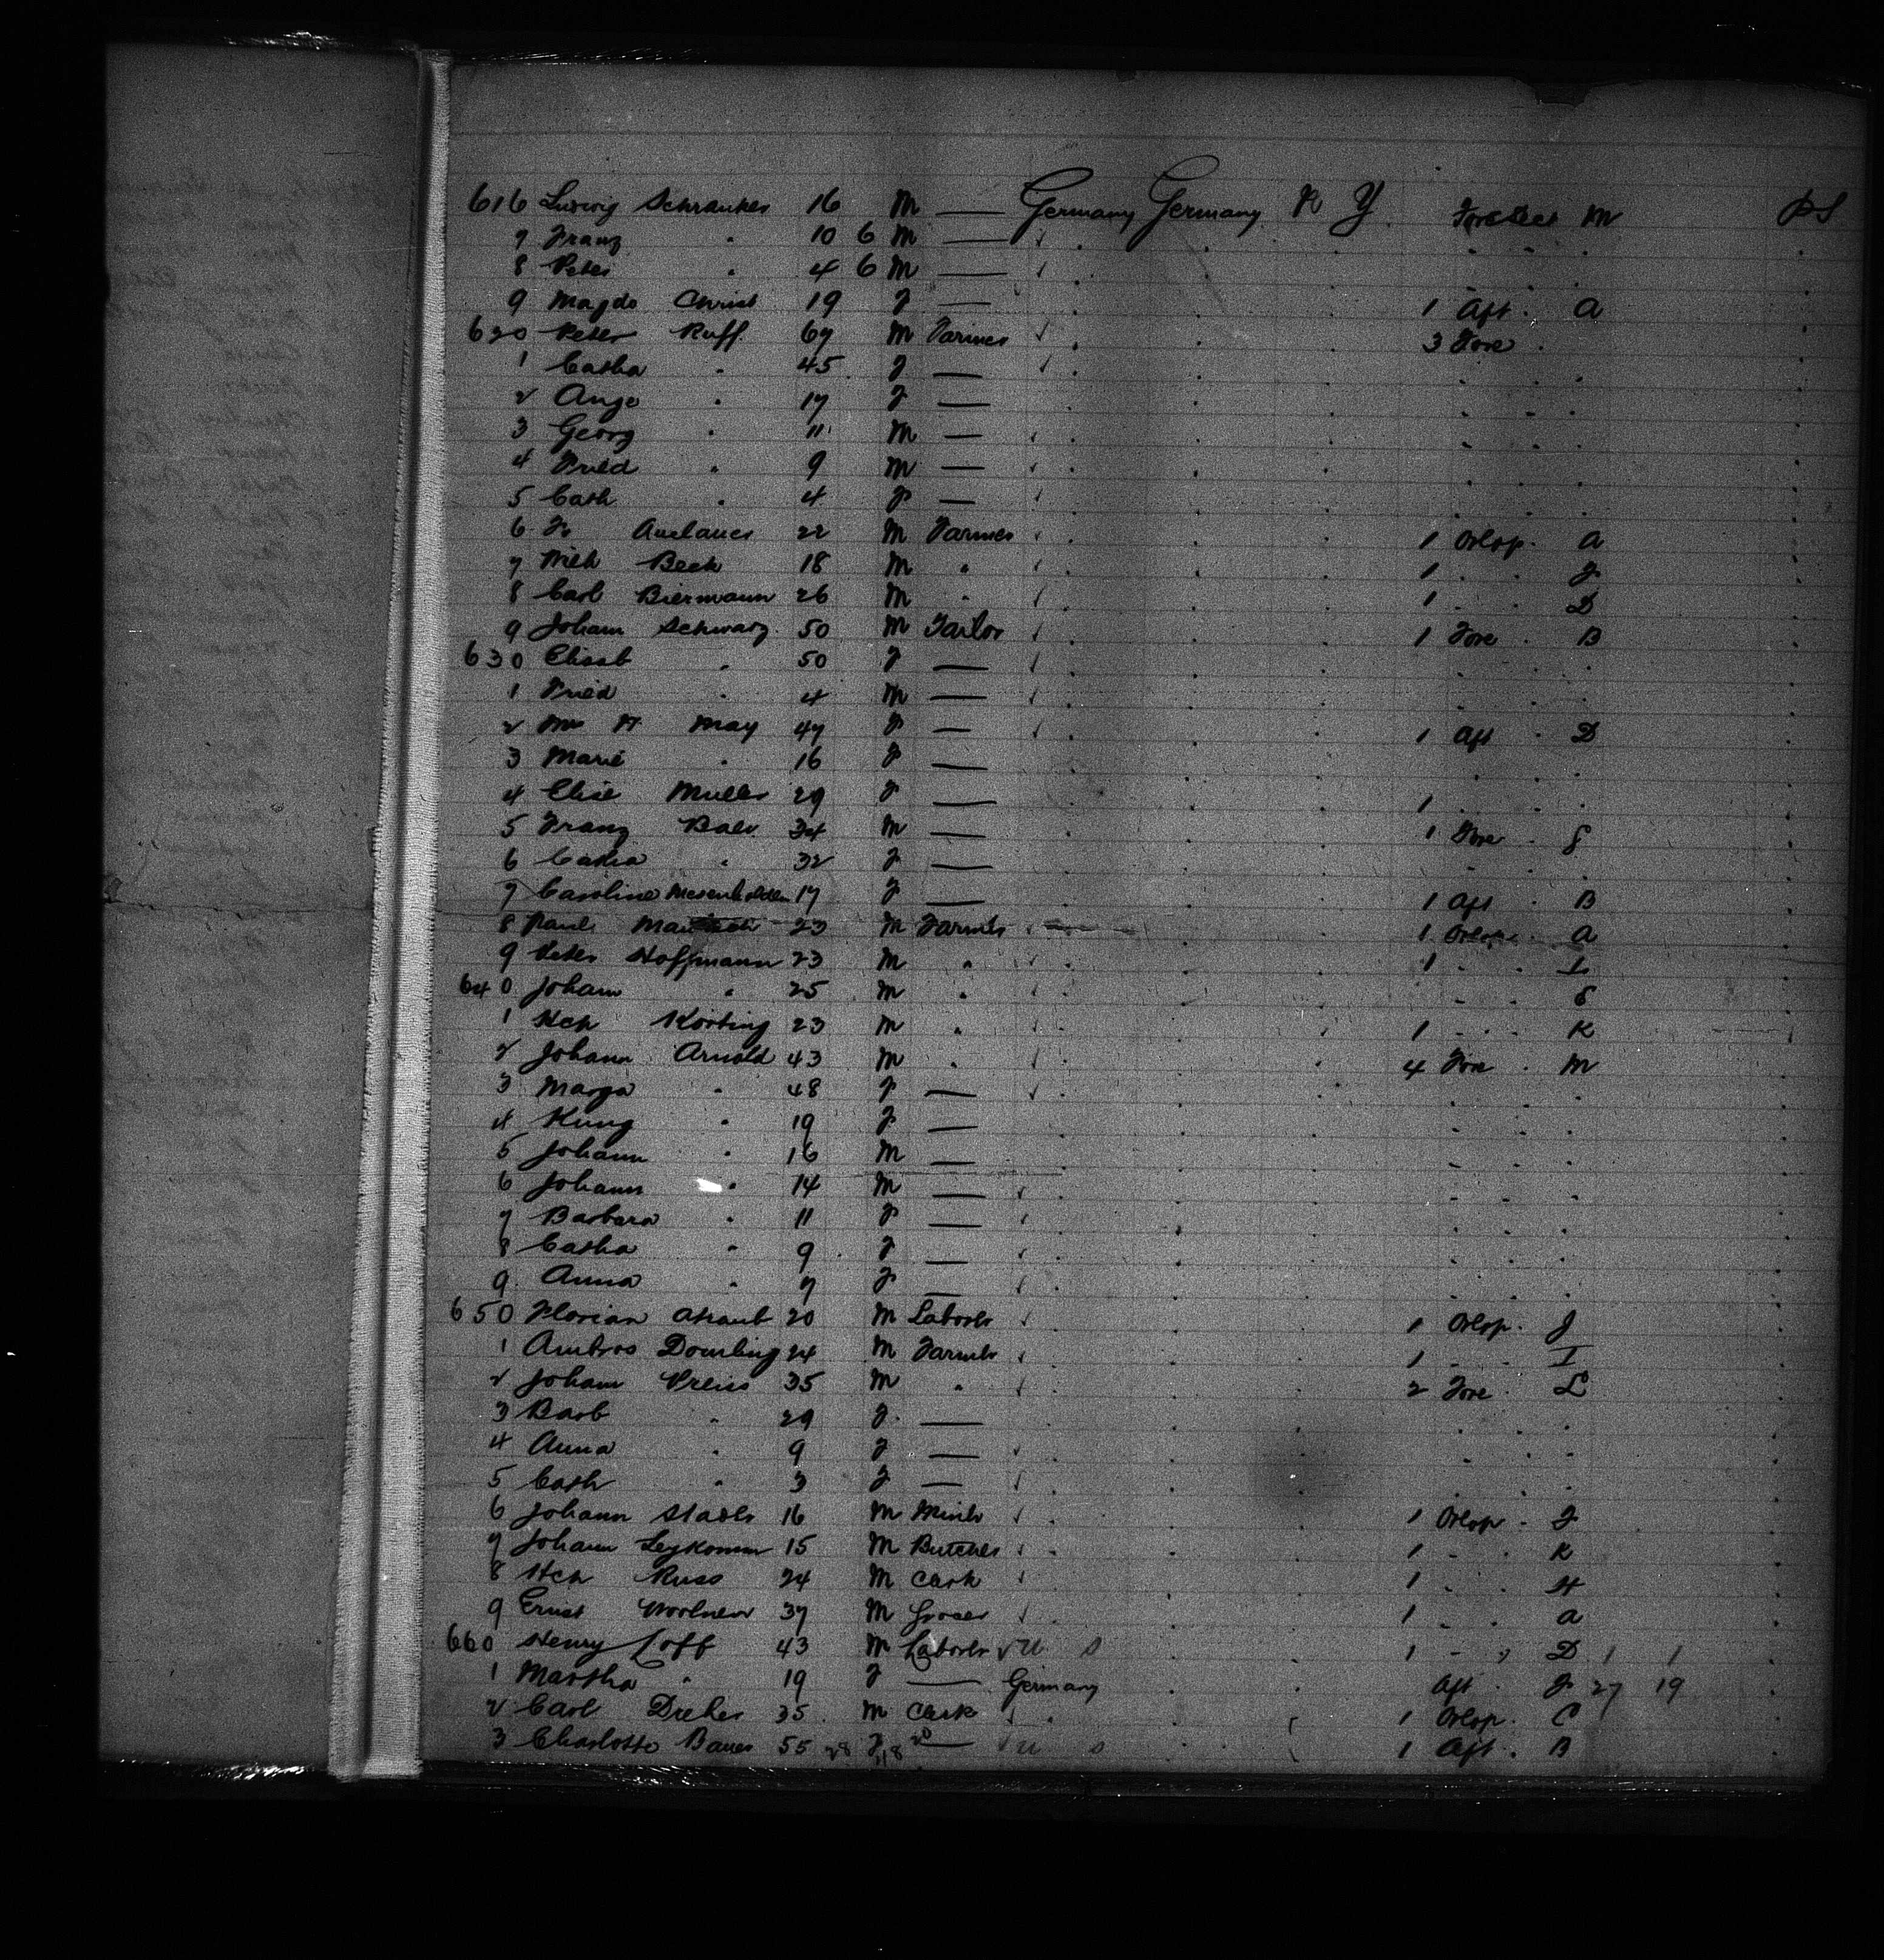 616 Ludwig Schraukes 16 M — Germany Germany N Y Fore Steer M P S
7 Franz " 10 6 M —
8 Peter " 4 6 M —
9 Magda Christ 19 F — 1 Aft. A
620 Peter Ruff 67 M Farmer 3 Fore
1 Catha " 45 F —
2 Ange " 17 F —
3 Georg " 11 M —
4 Fried " 9 M —
5 Cath " 4 F —
6 22 M Farmer 1 Orlop. A
7 Mich Beck 18 M " 1 F
8 Carl Biermann 26 M " 1 D
9 Johann Schwarz 50 M Tailor 1 Fore B
630 Elisab " 50 F —
1 Fried " 4 M —
2 Mrs May 47 F — 1 Aft D
3 Marie " 16 F —
4 Elise Muller 29 F — 1
5 Franz 34 M — 1 Fore
6 Catha " 32 F —
7 Caroline 17 F — 1 Aft B
8 Paul 23 M Farmer 1 Orlop A
9 Peter Hoffmann 23 M " 1
640 Johann " 25 M "
1 Hch Körting 23 M " 1 K
2 Johann Arnold 43 M " 4 Fore M
3 Marga " 48 F —
4 Kung " 19 F —
5 Johann " 16 M —
6 Johann " 14 M —
7 Barbara " 11 F —
8 Catha " 9 F —
9 Anna " 7 F —
650 Florian Straub 20 M Laborer 1 Orlop. J
1 Ambros Domling 24 M Farmer 1 I
2 Johann Preiss 35 M " 2 Fore L
3 Barb " 29 F —
4 Anna " 9 F —
5 Cath " 3 F —
6 Johann Stadler 16 M Miner 1 Orlop F
7 Johann Leykomm 15 M Butcher 1 K
8 Hch Russ 24 M Clerk 1 H
9 Ernst 37 M Grocer 1 A
660 Henry Loff 43 M Laborer U S 1 D 1 1
1 Martha " 19 F — Germany Aft F 27 19
2 Carl Dreher 35 M Clerk 1 Orlop. C
3 Charlotte Bauer 55 28 F 18 20 — U S 1 Aft. B